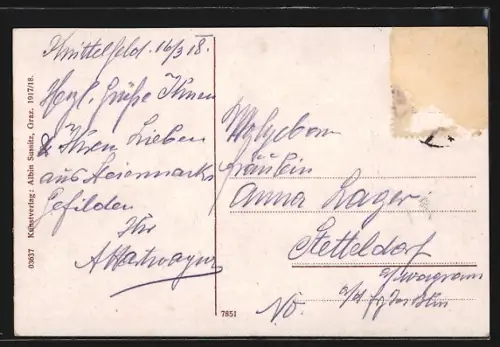 Knittelfeld 16/3 18.
Herzl. Grüße Ihnen
& Ihren Lieben
aus Steiermarks
Gefilden
Ihr
03637 Kunstverlag: Albin Sussitz, Graz. 1917/18.
7851
Wohlgeborn
Fräulein
Anna Lager
Stetteldorf
a/Wagram
NÖ.